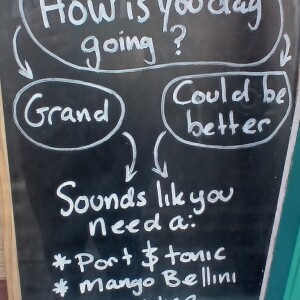 How is you day
going?
Grand
Could be
better
Sounds like you
need a:
* Port $ tonic
* Mango Bellini